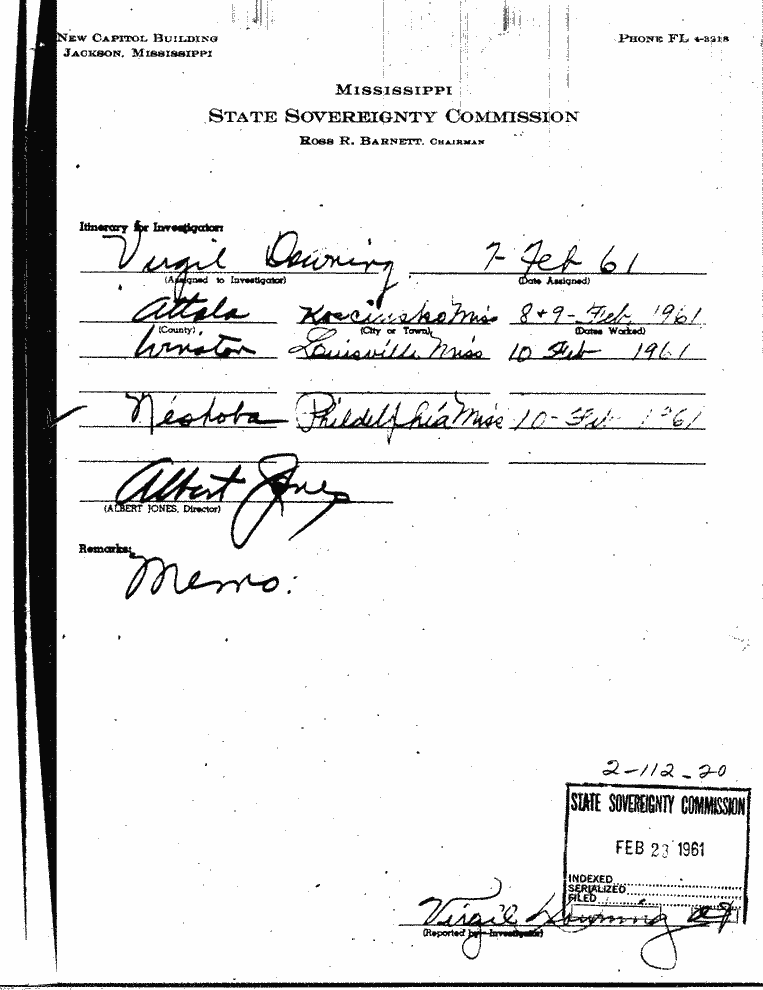 NEW CAPITOL BUILDING
JACKSON, MISSISSIPPI
PHONE FL 4-3218
MISSISSIPPI
STATE SOVEREIGNTY COMMISSION
ROSS R. BARNETT, CHAIRMAN
Itinerary for Investigator:
Virgil Downing 7- Feb 61
(Assigned to Investigator) (Date Assigned)
Attala Kosciusko Miss 8+9- Feb, 1961
(County) (City or Town) (Dates Worked)
Winston Louisville Miss 10 Feb 1961
Neshoba Phildelphia Miss 10- Feb 1961
Albert Jones
(ALBERT JONES, Director)
Remarks:
Memo:
2-112-20
STATE SOVEREIGNTY COMMISSION
FEB 23 1961
INDEXED
SERIALIZED
FILED
Virgil Downing
(Reported by-Investigator)